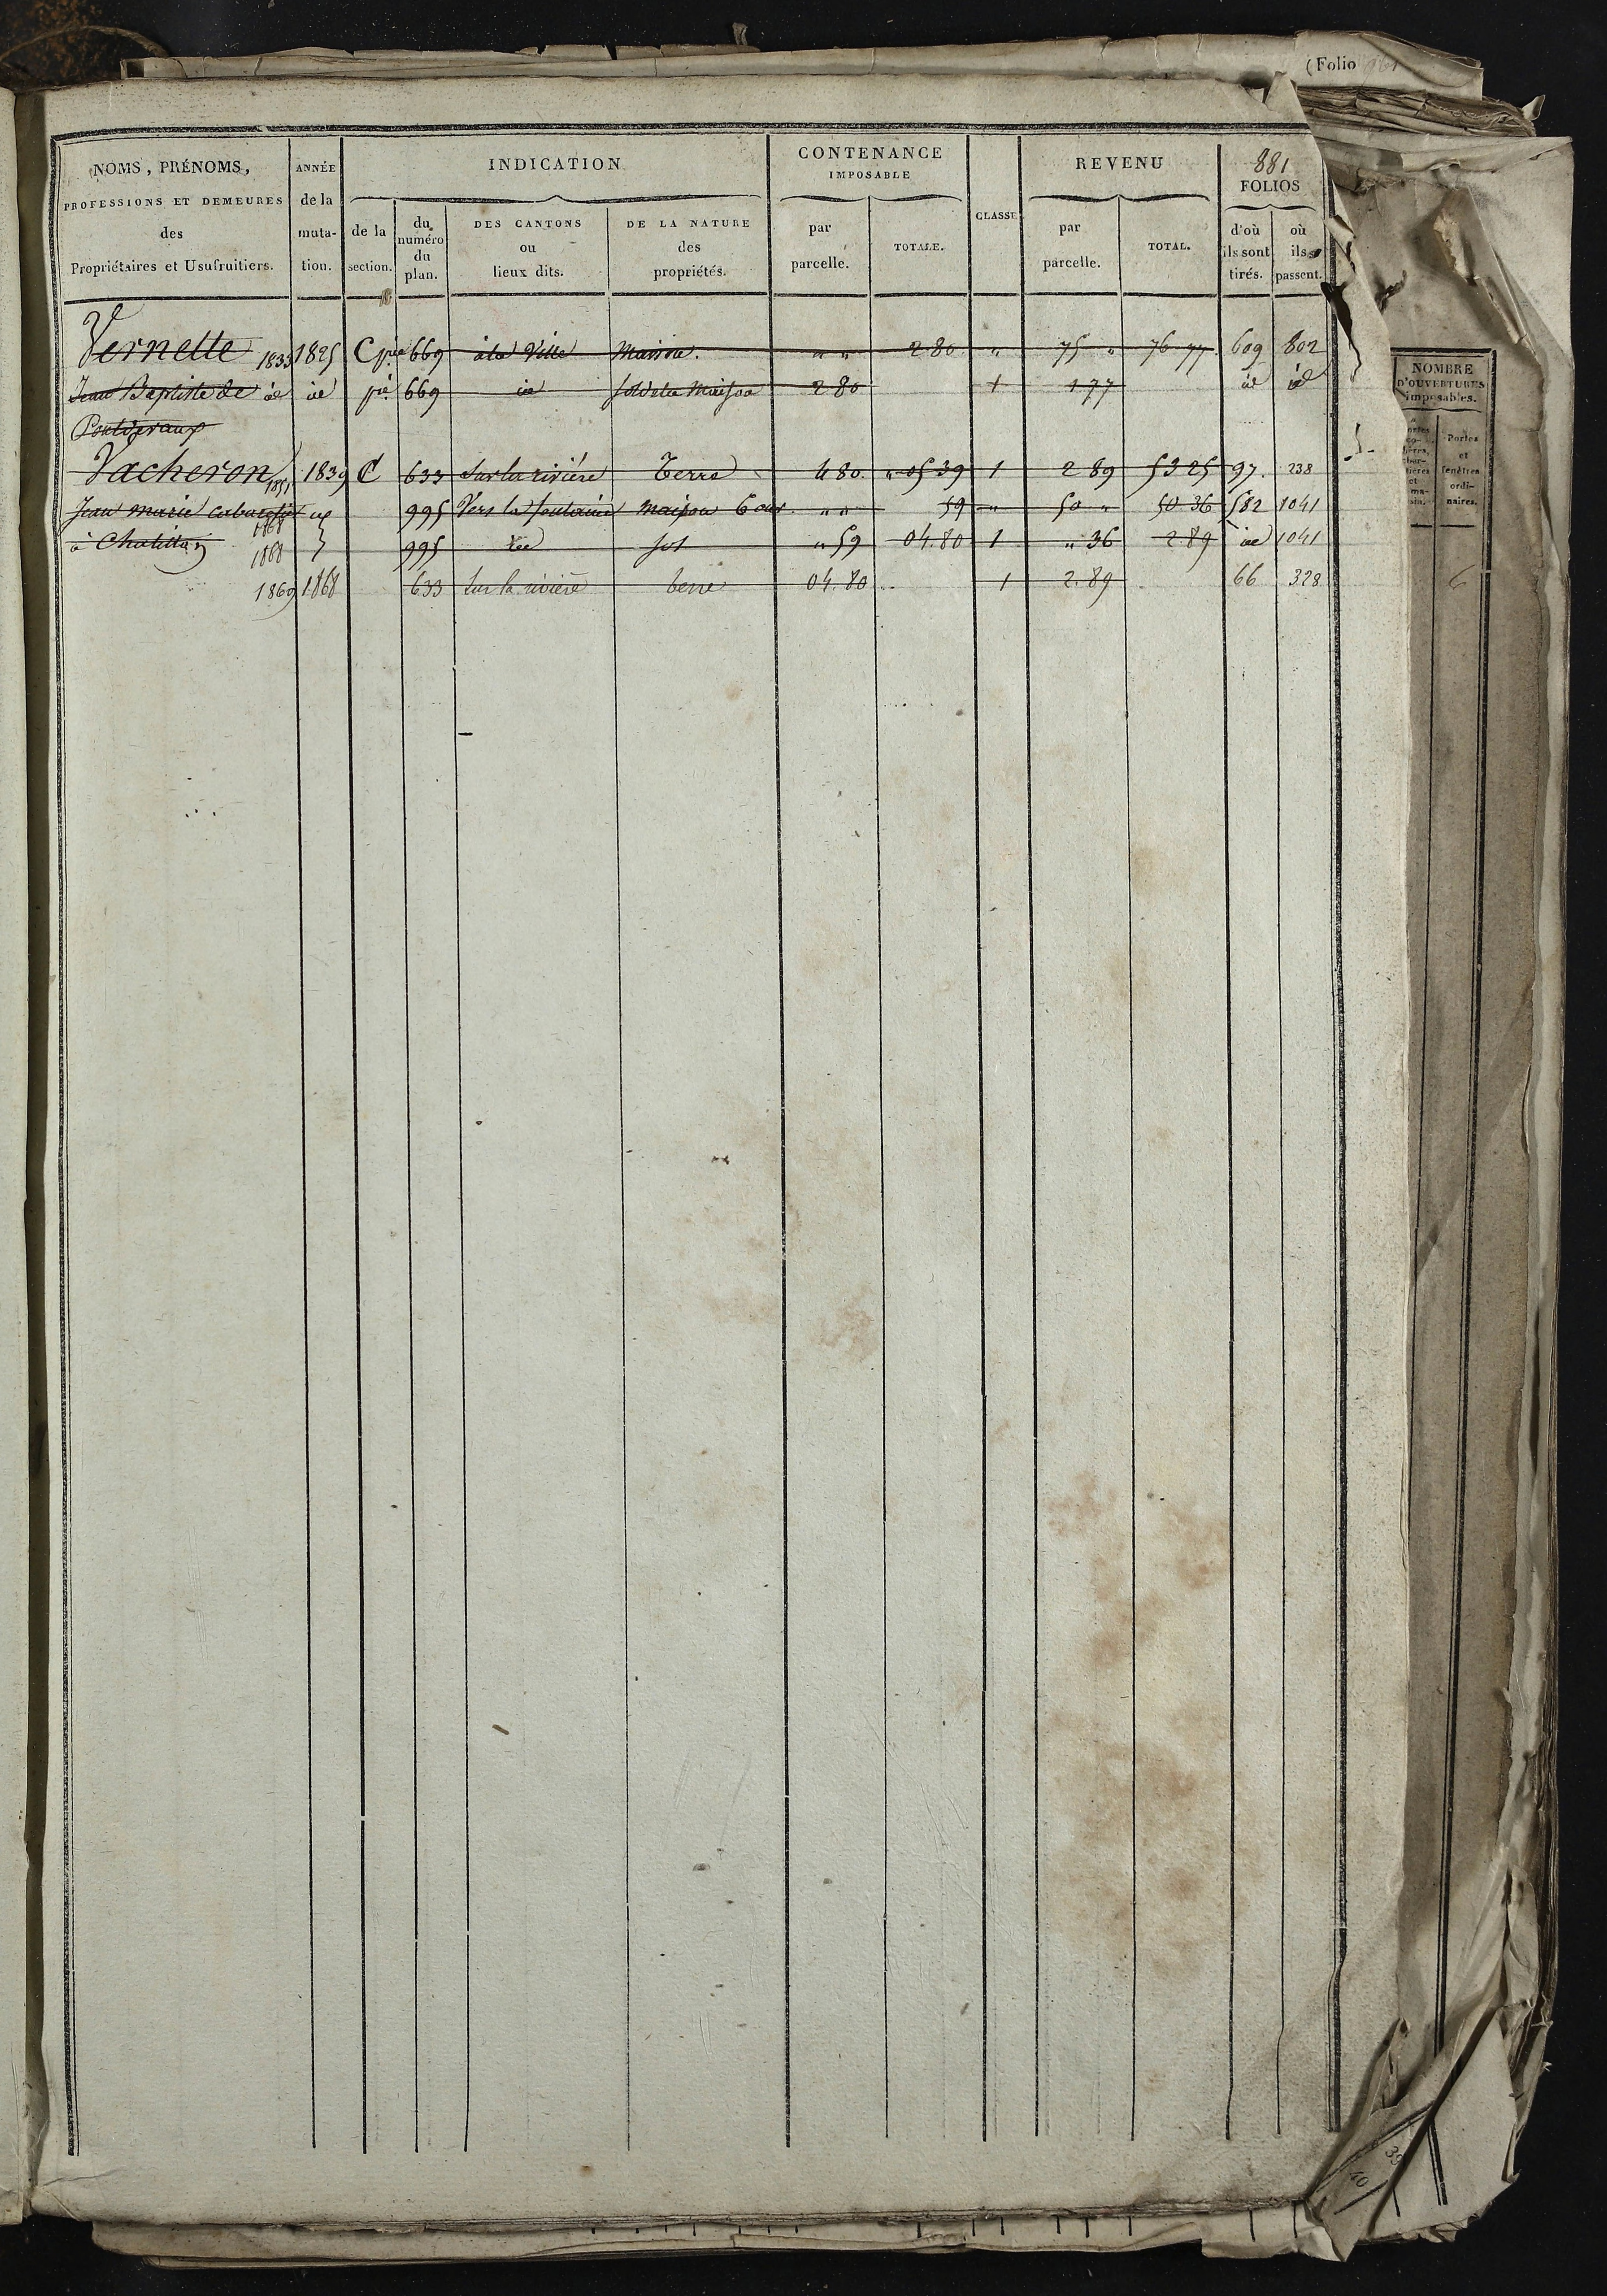 (Folio
NOMS, PRÉNOMS, PROFESSIONS ET DEMEURES des Propriétaires et Usufruitiers.
ANNÉE de la muta- tion.
INDICATION
de la section.
du numéro du plan.
DES CANTONS ou lieux dits.
DE LA NATURE des propriétés.
CONTENANCE IMPOSABLE
par parcelle.
TOTALE.
CLASSE
REVENU
par parcelle.
TOTAL.
881
FOLIOS
d'où ils sont tirés.
où ils passent.
NOMBRE D'OUVERTURES imposables.
Portes et fenêtres ordi- naires.
Vernette 1833 1825 C pie 669 à la Ville Maison. " " 2 80 " 75 " 76 77 609 802
Jean Baptiste de id id pie 669 id sol de la Maison 2 80 1 1 77 id id
Pontdevaux
Vacheron 1851 1839 C 633 Sur la rivière Terre 4 80 " 05 39 1 2 89 53 25 97 238
Jean Marie cabaretier 995 Vers la fontaine maison 6 ouv " " 59 " 50 " 50 36 582 1041
à Chatillon 1868 995 id sol " 59 04.80 1 " 36 2 89 id 1041
1869 1868 633 Sur la rivière terre 04.80 1 2.89 66 328
6